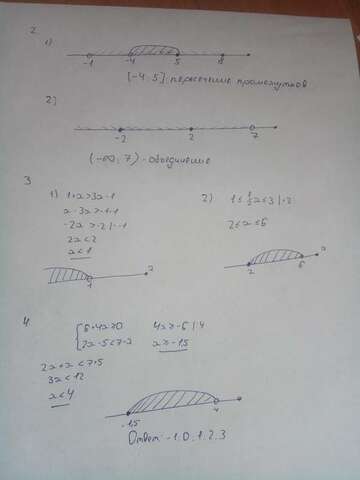 2
1)
-1 -4 5 8
[-4; 5] пересечение промежутков
2)
-2 2 7
(-∞; 7) - объединение
3
1) 1+x>3x-1
x-3x>-1-1
-2x>-2 |:-1
2x<2
x<1
1 x
2) 1≤½x≤3 |·2
2≤x≤6
2 6 x
4
{6+4x≥0
2x-5<7-x
4x≥-6 |:4
x≥-1.5
2x+x<7+5
3x<12
x<4
-1,5 4
Ответ -1.0.1.2.3